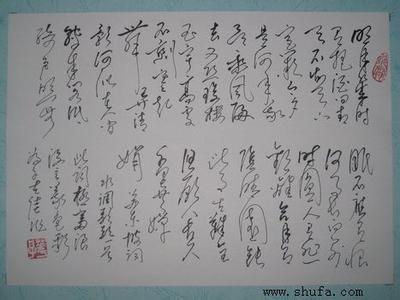 明月幾時
有把酒問青
天不知天上
宮闕今夕
是何年我
欲乘風歸
去又恐瓊樓
玉宇高處
不勝寒起
舞弄清
影何似在人間
轉朱閣低
綺戶照無
眠不應有恨
何事長向別
時圓人有悲
歡離合月有
陰晴圓缺
此事古難全
但願人長久
千里共嬋
娟 蘇東坡詞
水調歌頭一首
此詞極富浪
漫主義色彩
為千古佳作
www.shufa.com